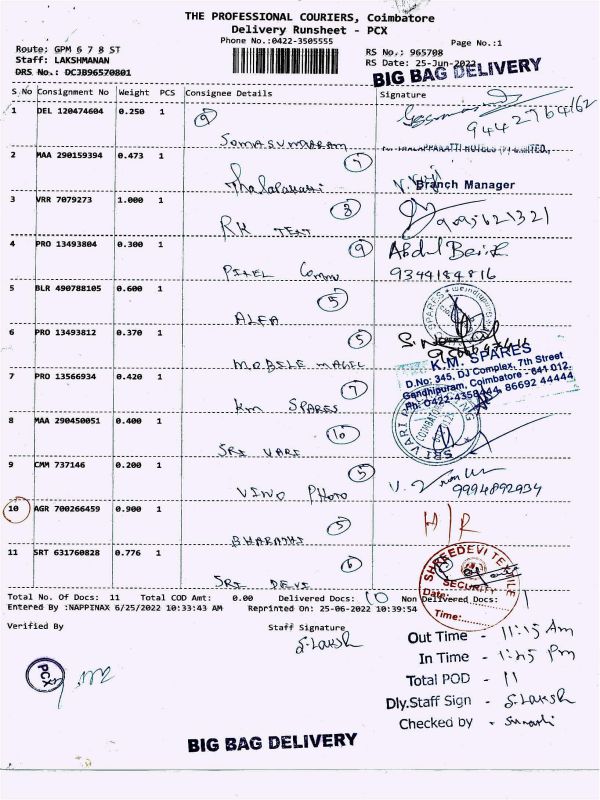 THE PROFESSIONAL COURIERS, Coimbatore
Delivery Runsheet - PCX
Phone No.:0422-3505555
Page No.:1
Route: GPM 6 7 8 ST
Staff: LAKSHMANAN
DRS No.: DCJB96570801
RS No.: 965708
RS Date: 25-Jun-2022
BIG BAG DELIVERY
S No Consignment No Weight PCS Consignee Details Signature
1 DEL 120474604 0.250 1 9
SOMASUNDARAM
9442764162
2 MAA 290159394 0.473 1 7
Thalapakatti
Branch Manager
3 VRR 7079273 1.000 1 8
RK TEXT
9095621321
4 PRO 13493804 0.300 1 9
PIXEL Comm
9344184816
5 BLR 490788105 0.600 1 5
ALFA
6 PRO 13493812 0.370 1 5
MOBILE MAGIC
7 PRO 13566934 0.420 1 7
KM SPARES
K.M. SPARES
D.No: 345, DJ Complex, 7th Street
Gandhipuram, Coimbatore - 641 012.
Ph: 0422-4358444, 86692 44444
8 MAA 290450051 0.400 1 10
SRI VARI
9 CMM 737146 0.200 1 5
VINO PHOTO
9994892934
10 AGR 700266459 0.900 1 5
BHARATHI
H/R
11 SRT 631760828 0.776 1 6
SRI DEVI
SHREEDEVI TEXTILE
SECURITY
Date:
Time:
Total No. Of Docs: 11 Total COD Amt: 0.00 Delivered Docs: 10 Non Delivered Docs: 1
Entered By :NAPPINAX 6/25/2022 10:33:43 AM Reprinted On: 25-06-2022 10:39:54
Verified By Staff Signature
S. Laksh
PCX
Out Time - 11:15 Am
In Time - 1:45 Pm
Total POD - 11
Dly.Staff Sign - S. Laksh
Checked by -
BIG BAG DELIVERY